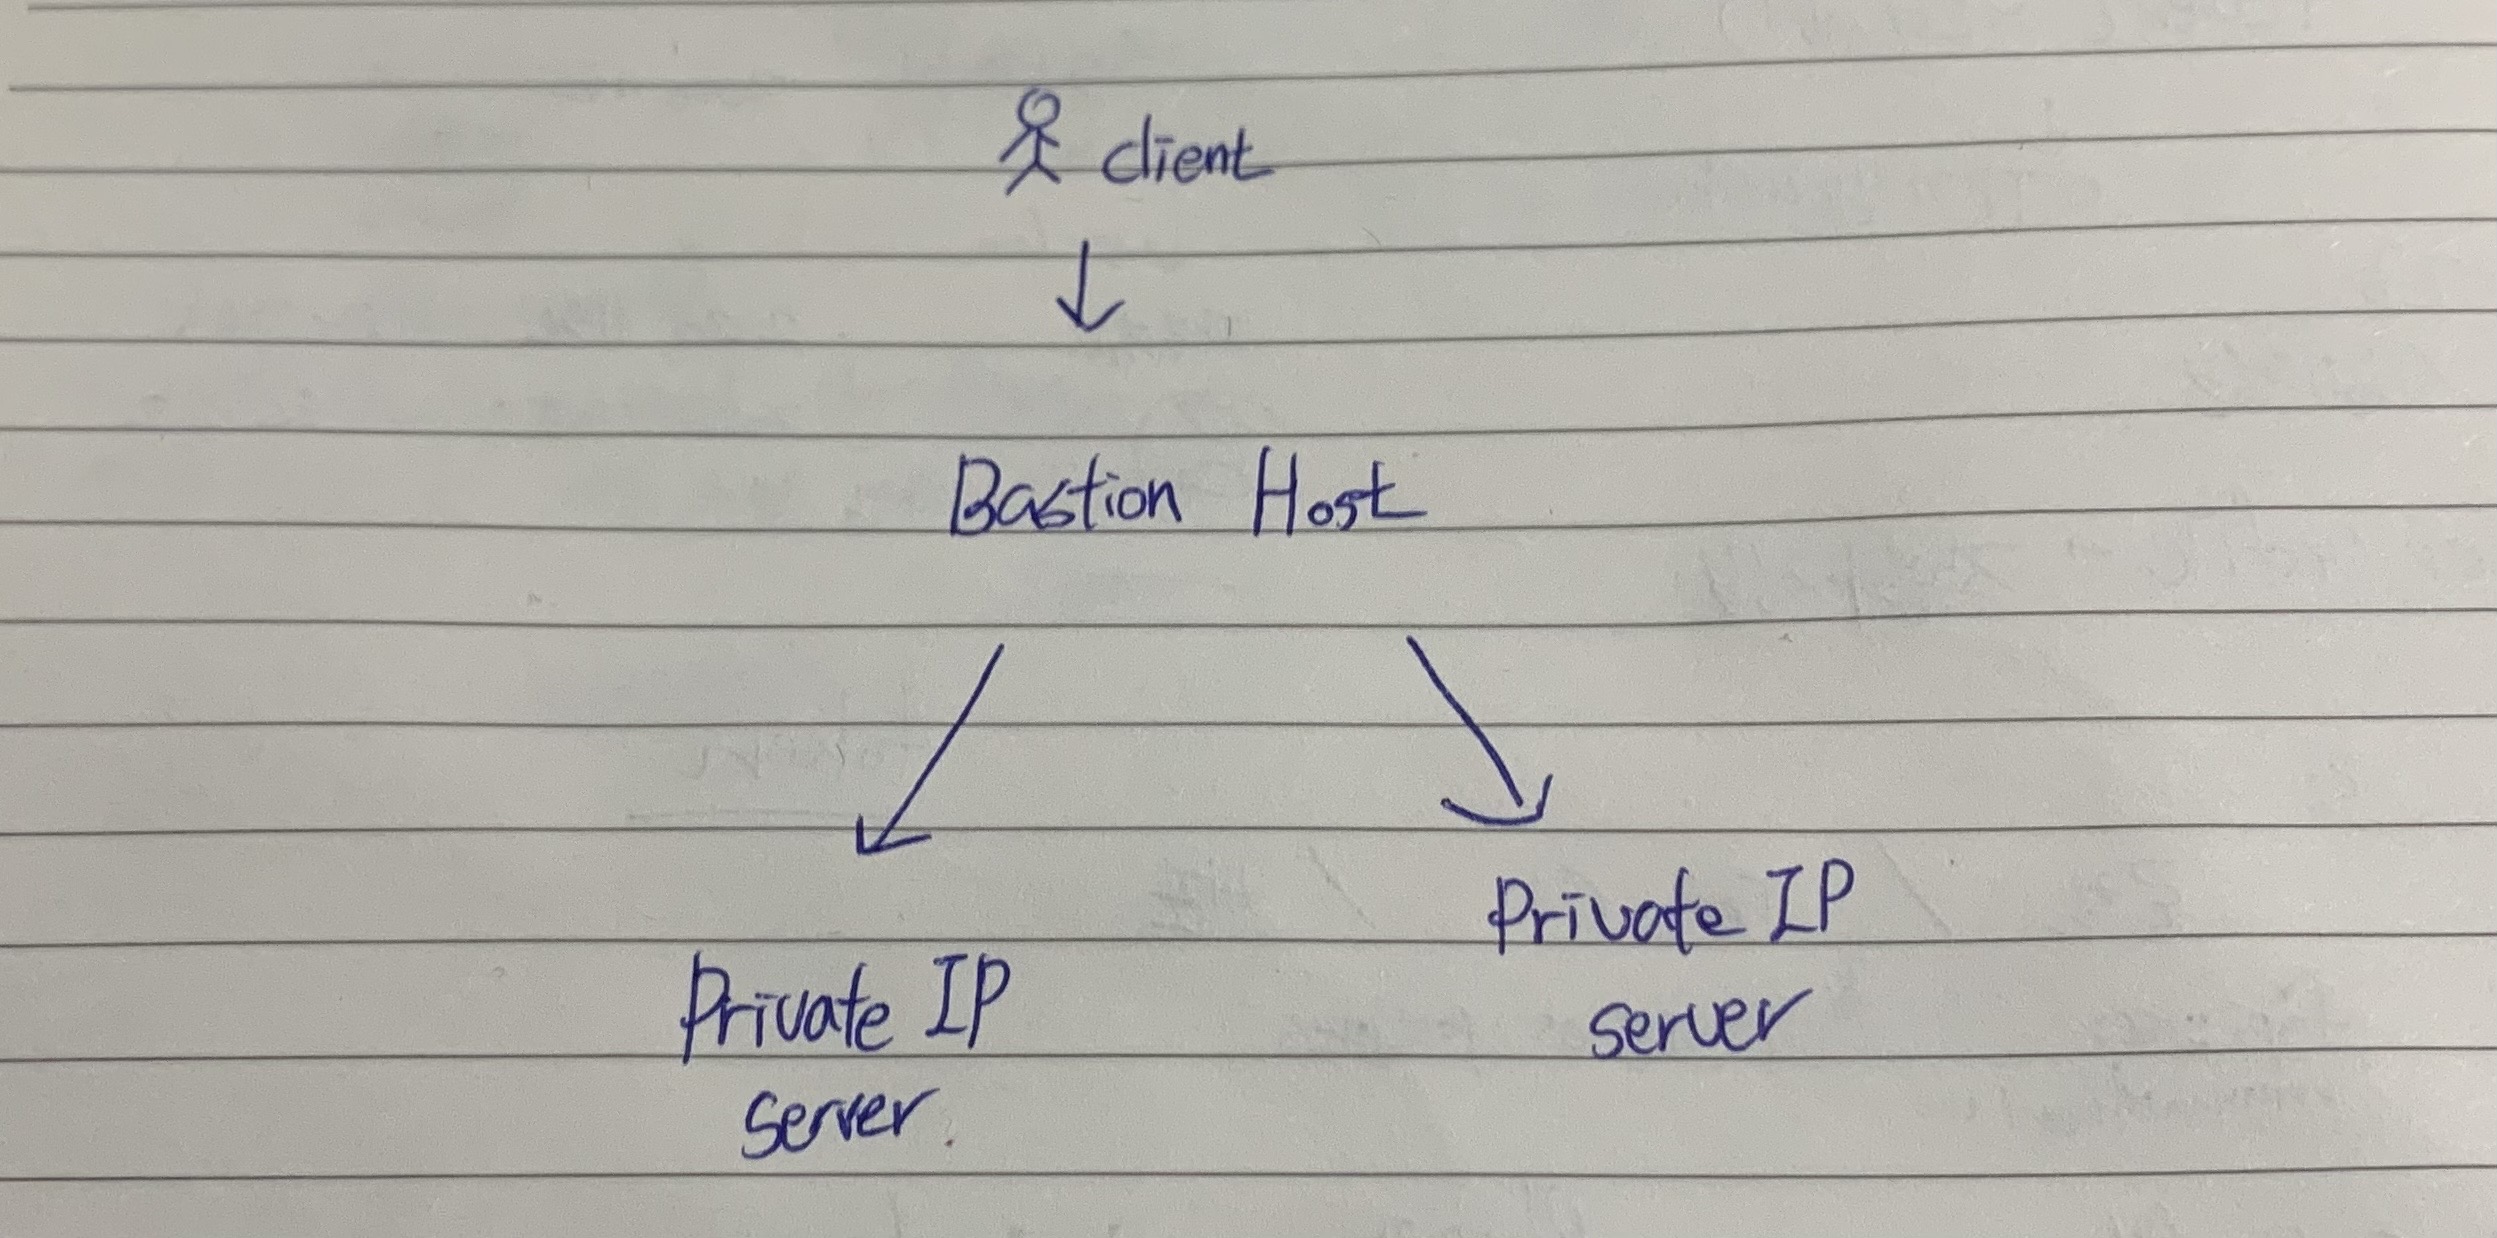 client
Bastion Host
Private IP
server.
Private IP
server